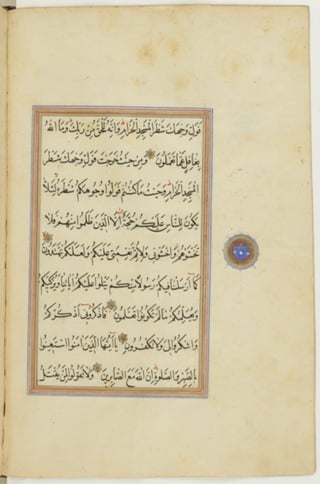 فول وجهك شطر المسجد الحرام وانه للحق من ربك وما الله
بغافل عما تعملون ومن حيث خرجت فول وجهك شطر
المسجد الحرام وحيث ما كنتم فولوا وجوهكم شطره لئلا
يكون للناس عليكم حجة الا الذين ظلموا منهم فلا
تخشوهم واخشوني ولاتم نعمتي عليكم ولعلكم تهتدون
كما ارسلنا فيكم رسولا منكم يتلوا عليكم اياتنا ويزكيكم
ويعلمكم ما لم تكونوا تعلمون فاذكروني اذكركم
واشكروا لي ولا تكفرون يا ايها الذين امنوا استعينوا
بالصبر والصلوة ان الله مع الصابرين ولا تقولوا لمن يقتل